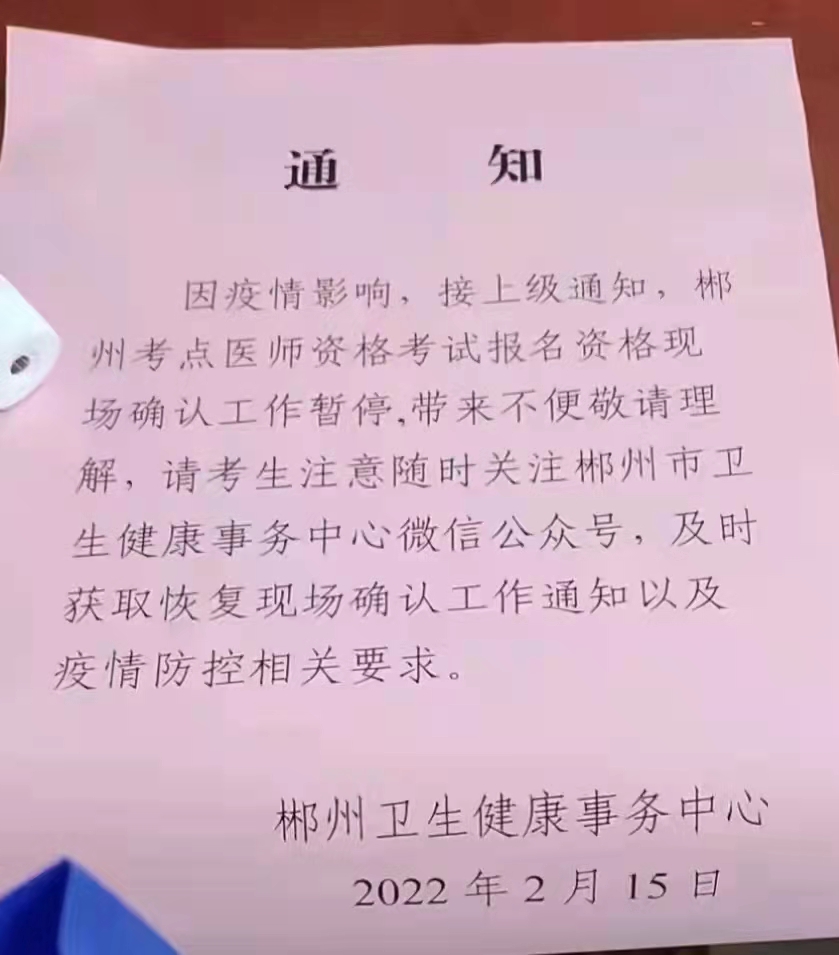 通 知
因疫情影响，接上级通知，郴
州考点医师资格考试报名资格现
场确认工作暂停,带来不便敬请理
解，请考生注意随时关注郴州市卫
生健康事务中心微信公众号，及时
获取恢复现场确认工作通知以及
疫情防控相关要求。
郴州卫生健康事务中心
2022 年 2 月 15 日